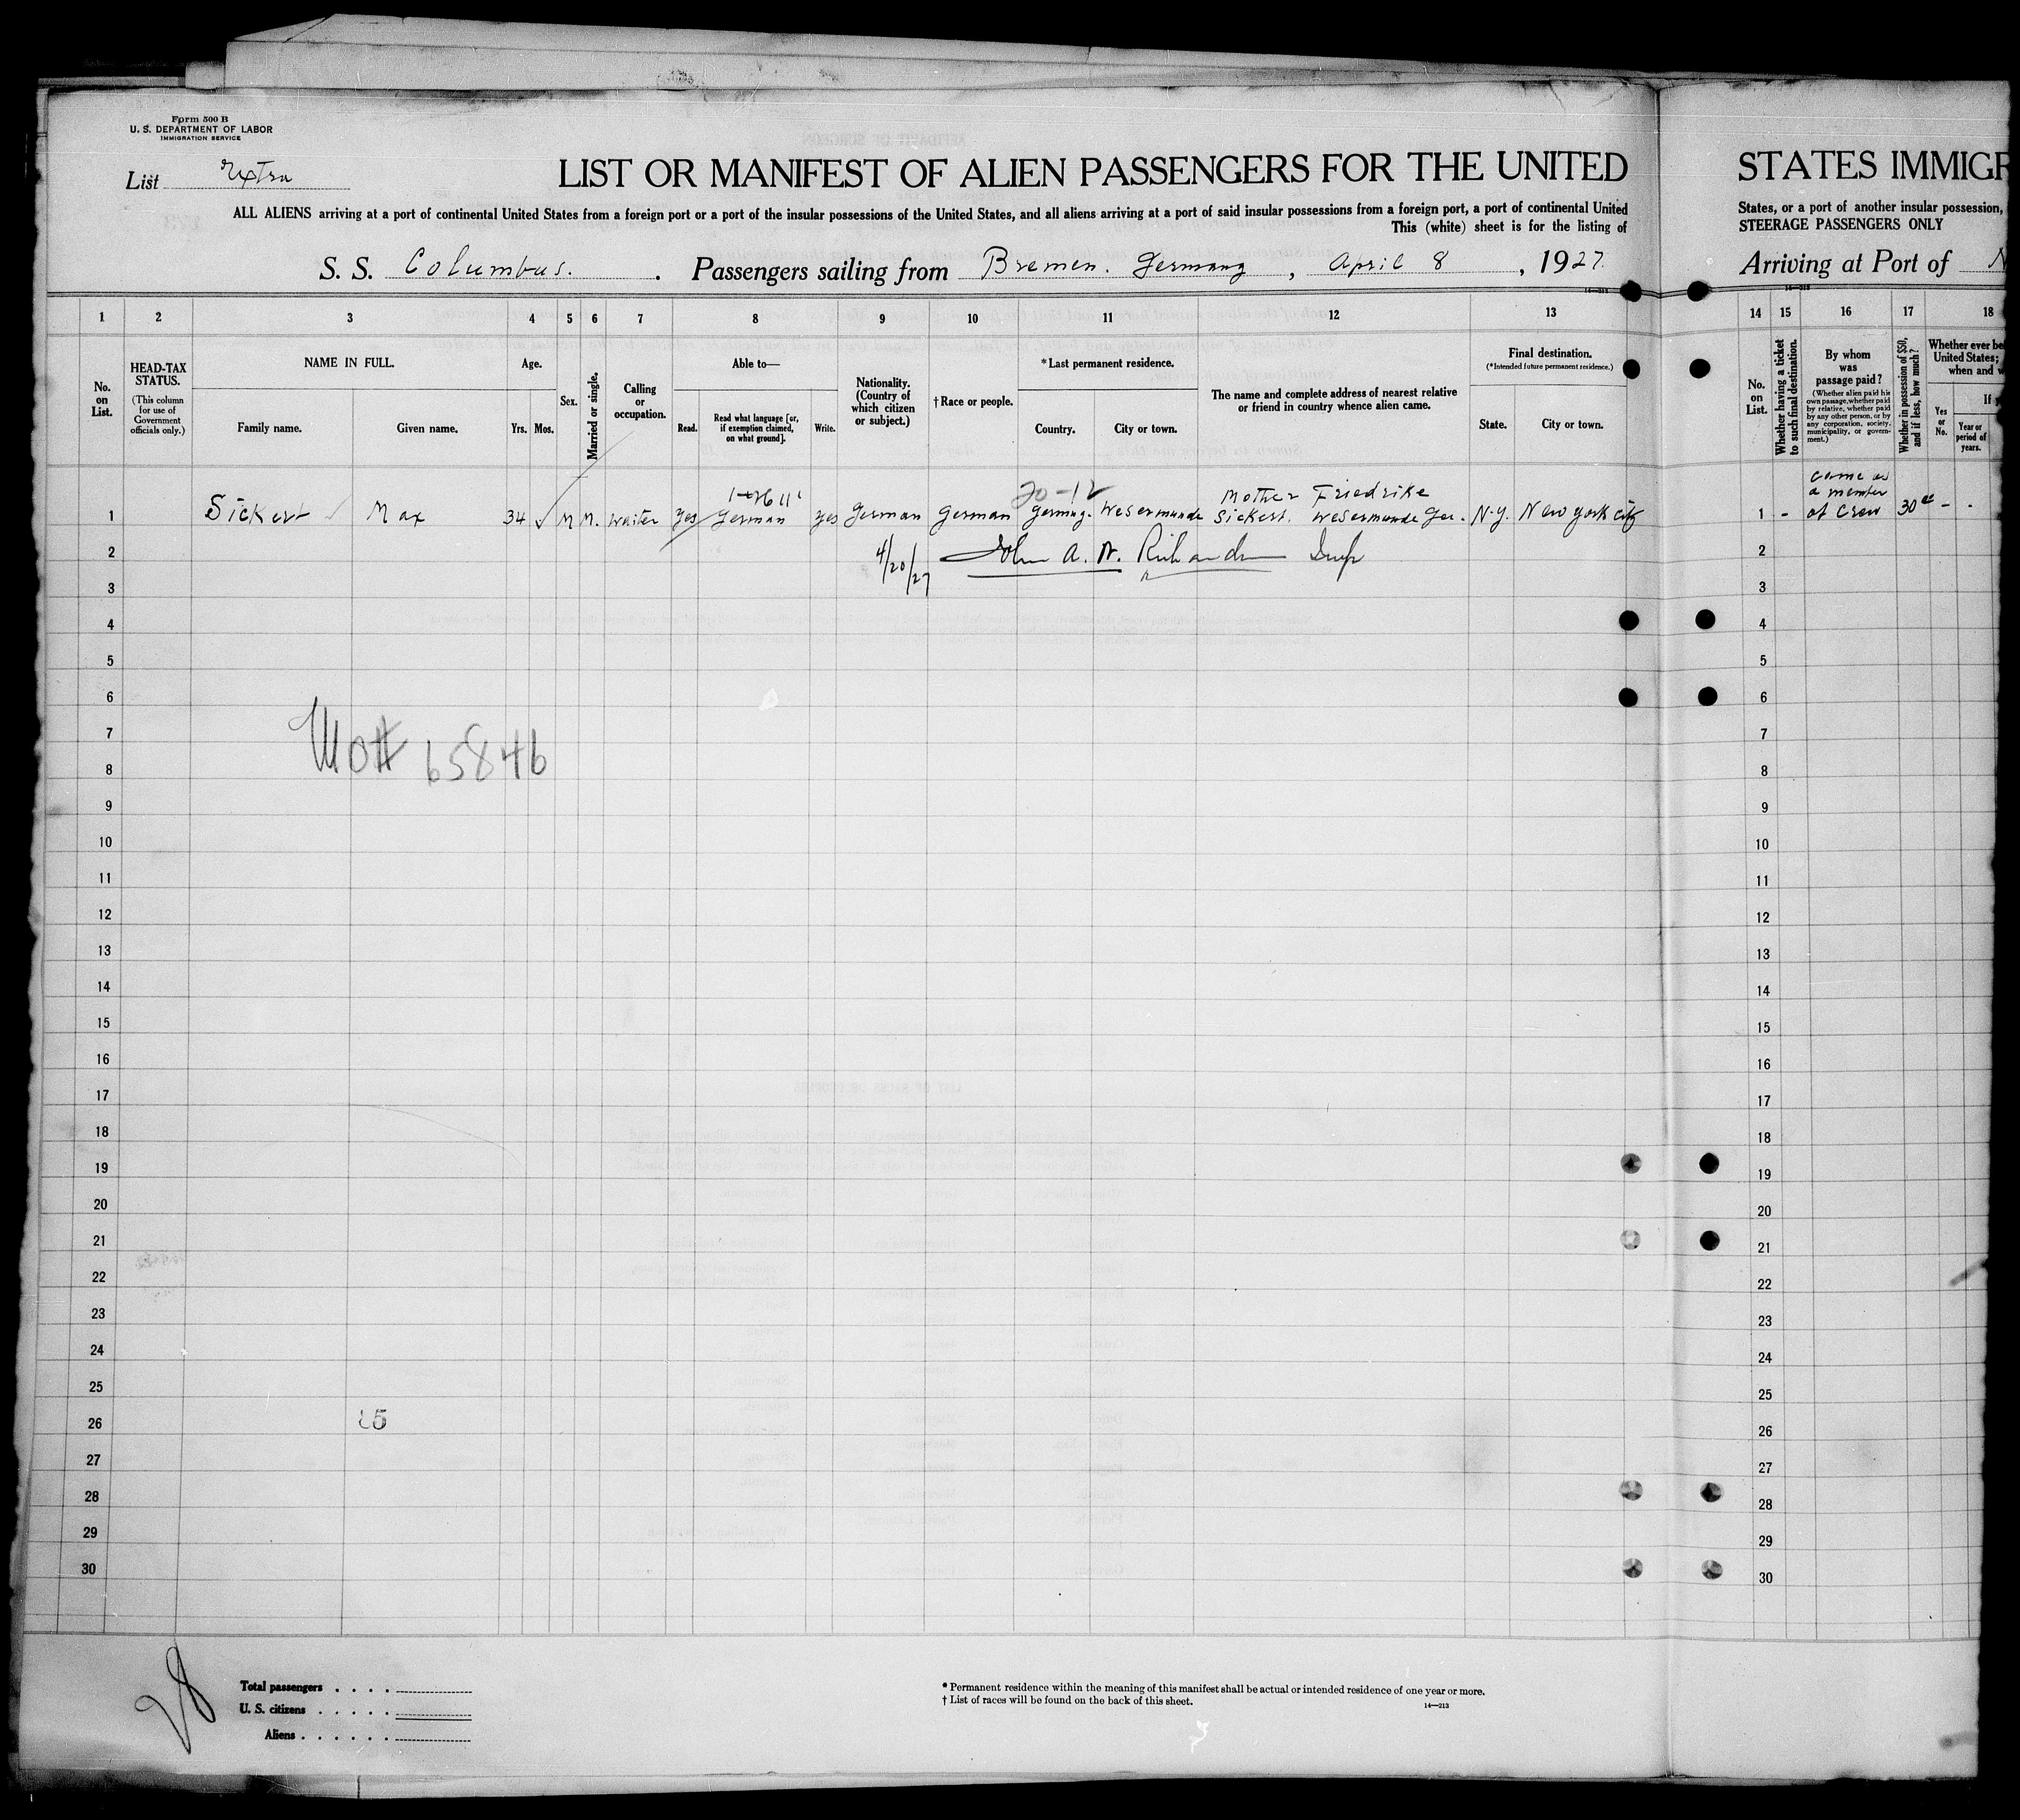 Form 500 B
U. S. DEPARTMENT OF LABOR
IMMIGRATION SERVICE
List Extra
LIST OR MANIFEST OF ALIEN PASSENGERS FOR THE UNITED
ALL ALIENS arriving at a port of continental United States from a foreign port or a port of the insular possessions of the United States, and all aliens arriving at a port of said insular possessions from a foreign port, a port of continental United
This (white) sheet is for the listing of
S. S. Columbus. Passengers sailing from Bremen. Germany, April 8, 1927.
STATES IMMIGR
States, or a port of another insular possession,
STEERAGE PASSENGERS ONLY
Arriving at Port of N
1 2 3 4 5 6 7 8 9 10 11 12 13
No. on List.
HEAD-TAX STATUS.
(This column for use of Government officials only.)
NAME IN FULL.
Family name. Given name.
Age.
Yrs. Mos.
Sex.
Married or single.
Calling or occupation.
Able to—
Read. Read what language [or, if exemption claimed, on what ground]. Write.
Nationality. (Country of which citizen or subject.)
†Race or people.
*Last permanent residence.
Country. City or town.
The name and complete address of nearest relative or friend in country whence alien came.
Final destination.
(*Intended future permanent residence.)
State. City or town.
14 15 16 17 18
No. on List.
Whether having a ticket to such final destination.
By whom was passage paid?
(Whether alien paid his own passage, whether paid by relative, whether paid by any other person, or by any corporation, society, municipality, or government.)
Whether in possession of $50, and if less, how much?
Whether ever be
United States;
when and w
If y
Yes or No.
Year or period of years.
20-12
1 Sickert Max 34 M M. Waiter yes German yes German German Germany. Wesermunde Mother Friedrike Sickert. Wesermunde Ger. N.Y. New York City
1 - came as a member of crew 30 - -
4/20/27 John A. W. Richardson Insp
2
3
4
5
6
7
8
9
10
11
12
13
14
15
16
17
18
19
20
21
22
23
24
25
26
27
28
29
30
2
3
4
5
6
7
8
9
10
11
12
13
14
15
16
17
18
19
20
21
22
23
24
25
26
27
28
29
30
65846
28
Total passengers
U. S. citizens
Aliens
* Permanent residence within the meaning of this manifest shall be actual or intended residence of one year or more.
† List of races will be found on the back of this sheet.
14—213